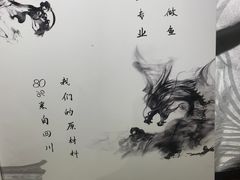 做鱼
专业
我们的原材料
80%来自四川